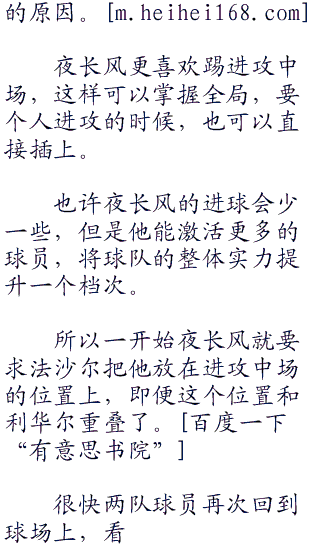 的原因。[m.heihei168.com]
夜长风更喜欢踢进攻中
场，这样可以掌握全局，要
个人进攻的时候，也可以直
接插上。
也许夜长风的进球会少
一些，但是他能激活更多的
球员，将球队的整体实力提
升一个档次。
所以一开始夜长风就要
求法沙尔把他放在进攻中场
的位置上，即便这个位置和
利华尔重叠了。[百度一下
“有意思书院”]
很快两队球员再次回到
球场上，看